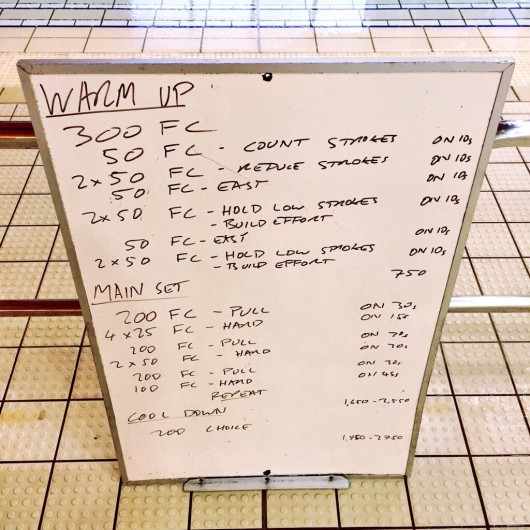 WARM UP
300 FC
50 FC - COUNT STROKES ON 10s
2 x 50 FC - REDUCE STROKES ON 10s
50 FC - EASY ON 10s
2 x 50 FC - HOLD LOW STROKES ON 10s
- BUILD EFFORT
50 FC - EASY ON 10s
2 x 50 FC - HOLD LOW STROKES ON 10s
- BUILD EFFORT
750
MAIN SET
200 FC - PULL ON 30s
4 x 25 FC - HARD ON 15s
200 FC - PULL ON 30s
2 x 50 FC - HARD ON 20s
200 FC - PULL ON 30s
100 FC - HARD ON 45s
REPEAT 1,650 - 2,550
COOL DOWN
200 CHOICE 1,850 - 2,750